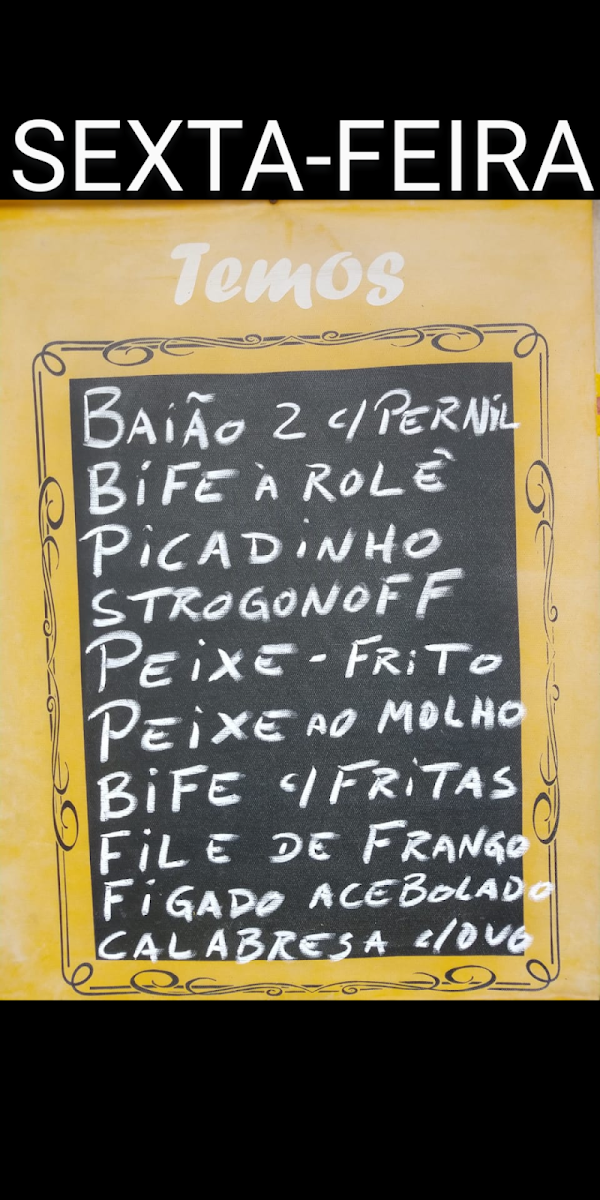 SEXTA-FEIRA
Temos
BAiÃO 2 c/PERNiL
BiFE À ROLÊ
PiCADiNHO
STROGONOFF
PEiXE-FRiTO
PEiXE AO MOLHO
BiFE c/FRiTAS
FiLE DE FRANGO
FiGADO ACEBOLADO
CALABRESA c/OVO